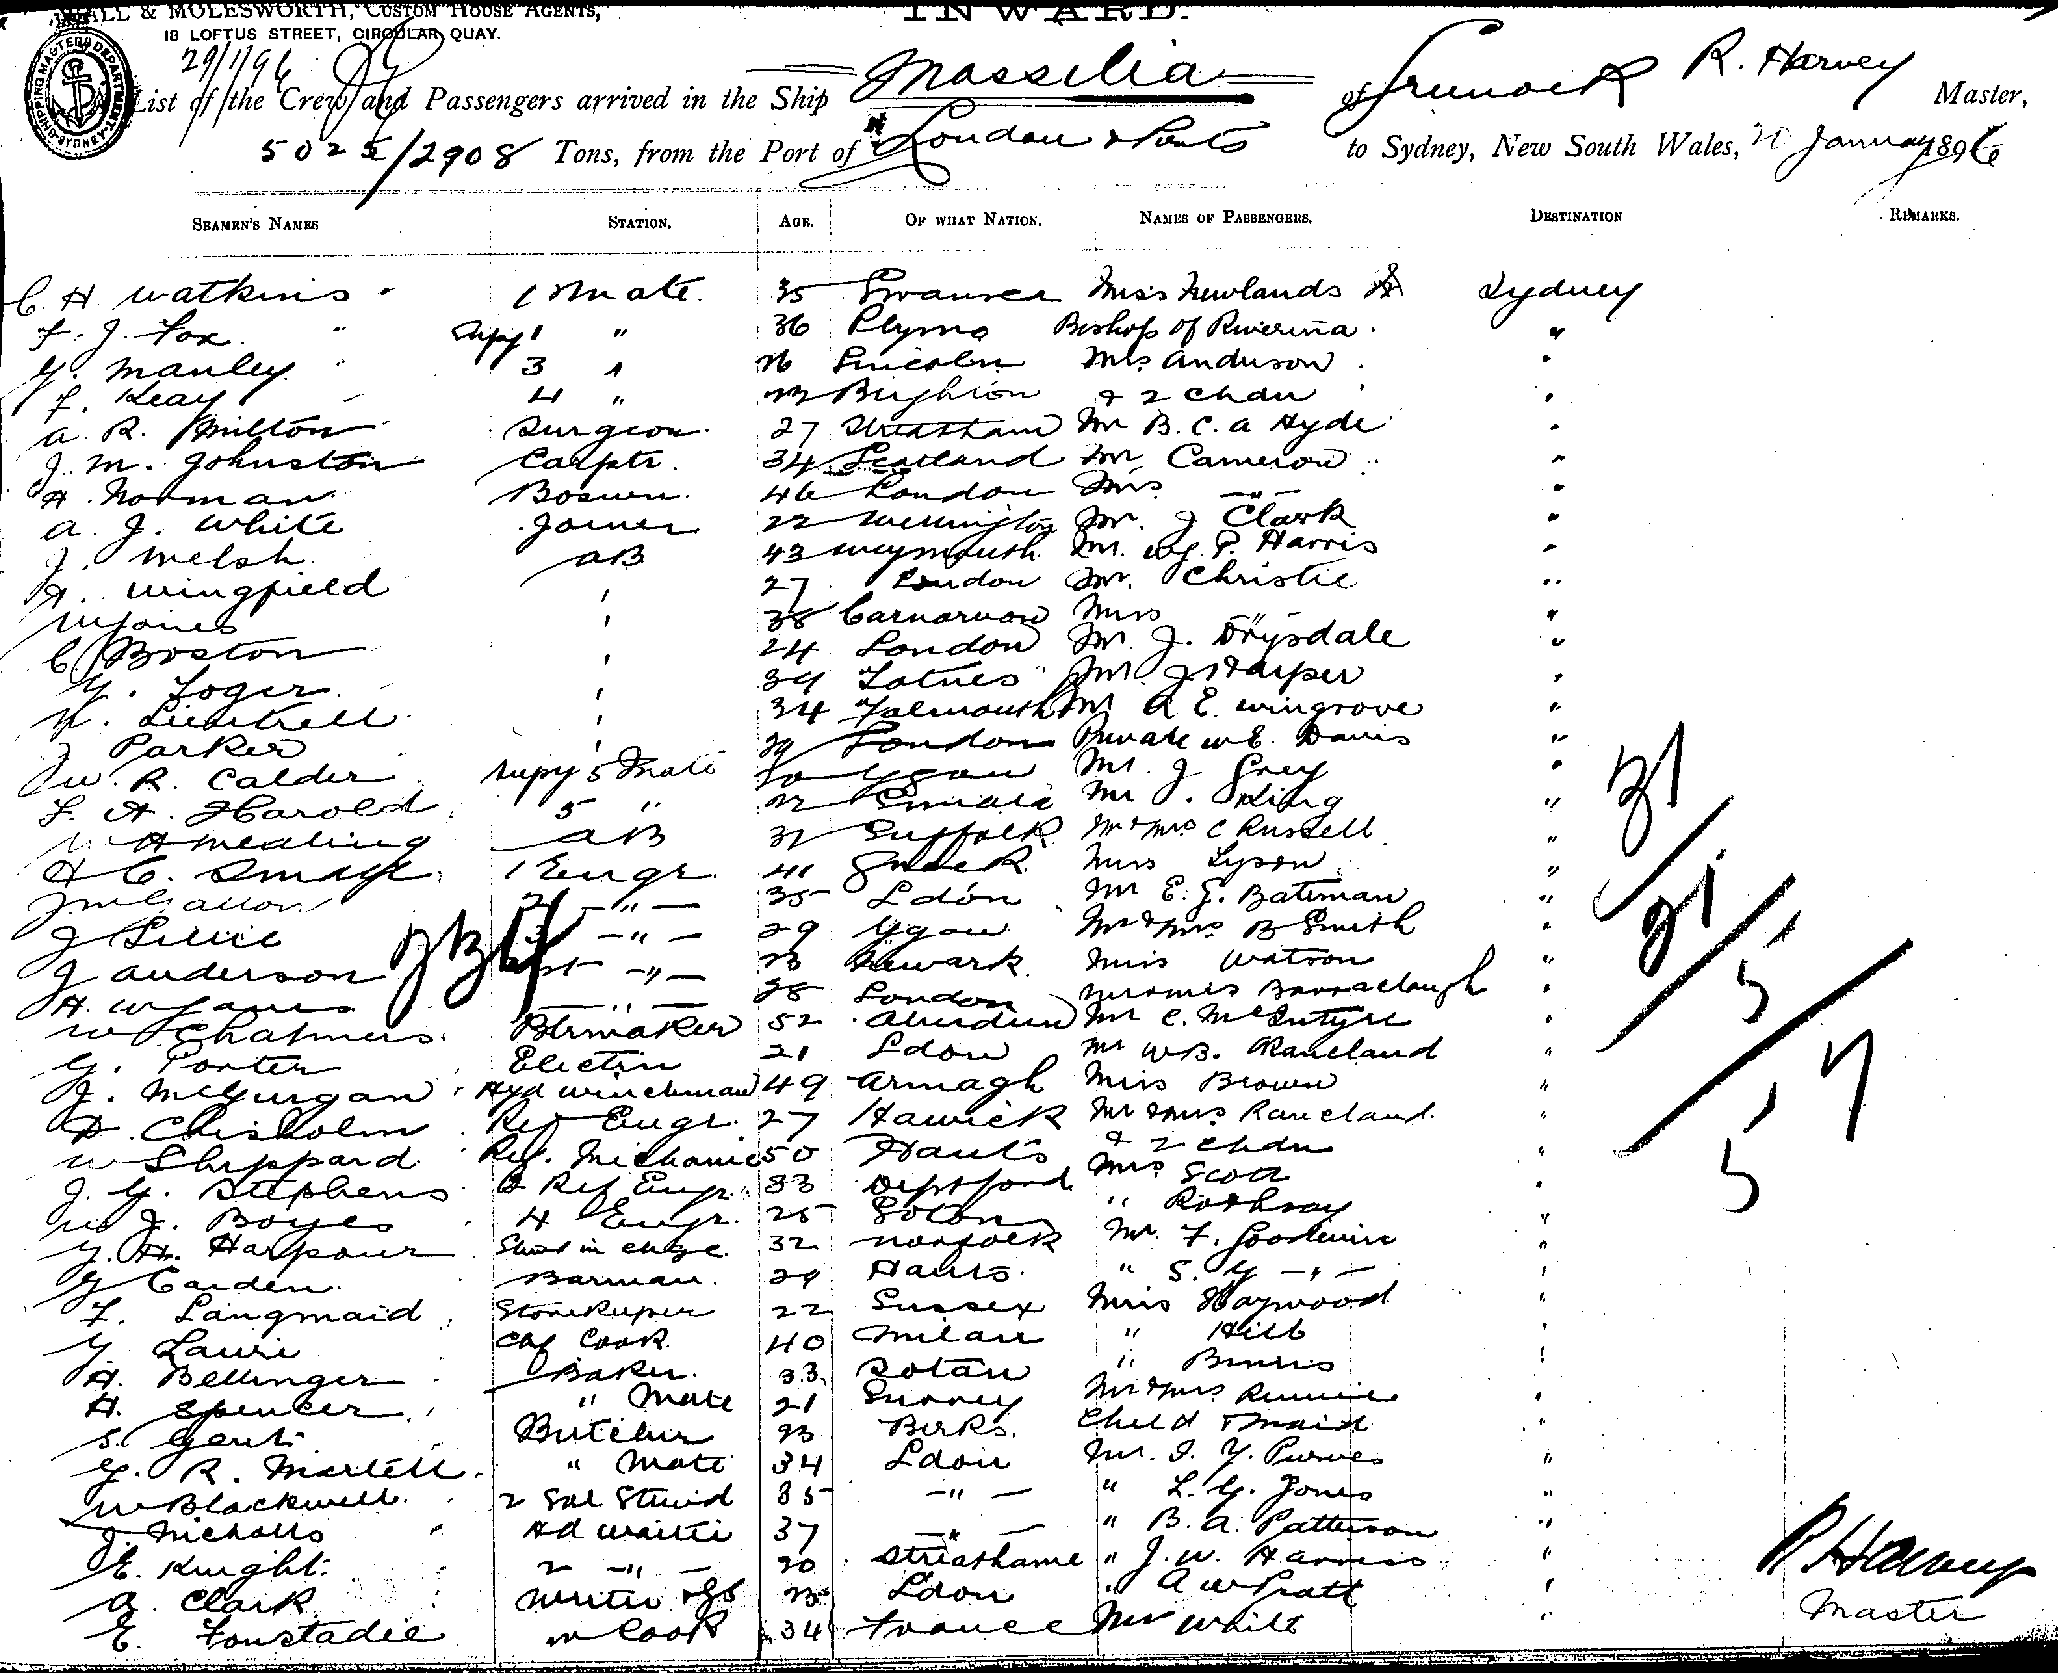 & MOLESWORTH, CUSTOM HOUSE AGENTS, INWARD.
18 LOFTUS STREET, CIRCULAR QUAY.
29/1/96
List of the Crew and Passengers arrived in the Ship Massilia of Greenock R. Harvey Master,
5025/2908 Tons, from the Port of London & Ports to Sydney, New South Wales, January 1896
SEAMEN'S NAMES STATION. AGE. OF WHAT NATION. NAMES OF PASSENGERS. DESTINATION REMARKS.
C H Watkins 1 Mate 35 Swansea Miss Newlands Sydney
F. J. Fox Supy 1 " 36 Plymo Bishop of Riverina "
G. Manley 3 " 26 Lincoln Mrs Anderson "
F. Keay 4 " 23 Brighton & 2 Chdn "
A. R. Milton Surgeon 27 Streatham Mr B. C. A Hyde "
J. M. Johnston Carptr. 34 Scotland Mr Cameron "
H. Norman Boswn. 46 London Mrs - " - "
A. J. White Joiner 22 Mr. J Clark "
J. Welsh AB 43 Weymouth Mr. W. P. Harris "
H. Wingfield " 27 London Mr. Christie "
W Jones " 38 Carnarvon Miss " "
C Boston " 24 London Mr. J. Drysdale "
G. Toger " 39 Totnes Mr. J Harper "
" 34 Falmouth Mr A E. Wingrove "
J Parker " 29 London Private W E. Davis "
W. R. Calder Supy 5 Mate Mr. J Grey "
F. H. Harold 5 " 22 Mr J. King "
Mealing AB 31 Suffolk Mr & Mrs C Russell "
H C. 1 Engr 41 Miss Lyson "
2 - " - 35 Ldon Mr E. G. Bateman "
J 3 - " - 29 Mr & Mrs B Smith "
J Anderson - " - 23 Newark Miss Watson "
H. W James - " - 28 London Mr & Mrs Barraclough "
W Chalmers Blrmaker 52 Aberdeen Mr C. McIntyre "
G. Porter Electrn 21 Ldon Mr W B. Raneland "
J. McGurgan Hyd Winchman 49 Armagh Miss Brown "
D. Chisholm Ref Engr. 27 Hawick Mr & Mrs Raneland "
W Sheppard Ref. Mechanic 50 Hants & 2 Chdn "
J. G. Stephens 2 Ref Engr. 33 Deptford Mrs Scott "
W J. Boyes 4 Engr. 25 Soton " Rothray "
G. H. Harpour Stwd in chge 32 Norfolk Mr. F. Goodwin "
G Carden Barman. 29 Hants. " S. G - " - "
F. Langmaid Storekeeper 22 Sussex Miss Haywood "
G Lauri Chf Cook 40 Milan " Hill "
H. Bellinger Baker. 33 Soton " Binns "
H. Spencer " Mate 21 Surrey Mr & Mrs Rennie "
S. Gent Butcher 23 Berks. Child & Maid "
G. R. Martell " Mate 34 Ldon Mr. I. Y. Purves "
W Blackwell 2 Sal Stwd 35 - " - " L. G. Jones "
J. Nicholls Hd Waiter 37 - " - " B. A. Patterson "
E. Knight 2 - " - 20 Streathame " J. W. Harriss "
A. Clark Writer 23 Ldon " A W Pratt "
E. Fonstadie Cook 34 France Mr White "
31
31
5
57
5
R Harvey
Master